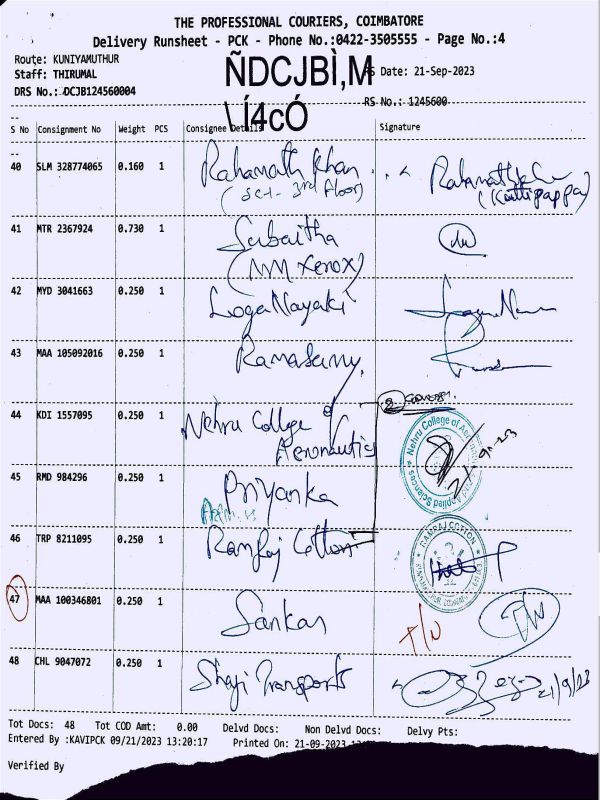 THE PROFESSIONAL COURIERS, COIMBATORE
Delivery Runsheet - PCK - Phone No.:0422-3505555 - Page No.:4
Route: KUNIYAMUTHUR
Staff: THIRUMAL
ÑDCJBÌ,M
Date: 21-Sep-2023
DRS No.: DCJB124560004
\Í4cÓ
RS No.: 1245600
S No Consignment No Weight PCS Consignee Details Signature
40 SLM 328774065 0.160 1 Rahamath Khan
(Sct- 3rd floor)
41 MTR 2367924 0.730 1 Sabaitha
(MM Xerox)
42 MYD 3041663 0.250 1 LogaNayaki
43 MAA 105092016 0.250 1 Ramasamy
44 KDI 1557095 0.250 1 Nehru College of
Aeronautics
Nehru College of
and Applied Sciences
45 RMD 984296 0.250 1 Priyanka
46 TRP 8211095 0.250 1 Ramraj Cotton
RAMRAJ COTTON
47 MAA 100346801 0.250 1 Sankar
48 CHL 9047072 0.250 1 Shaji Transports 21/9/23
Tot Docs: 48 Tot COD Amt: 0.00 Delvd Docs: Non Delvd Docs: Delvy Pts:
Entered By :KAVIPCK 09/21/2023 13:20:17 Printed On: 21-09-2023
Verified By